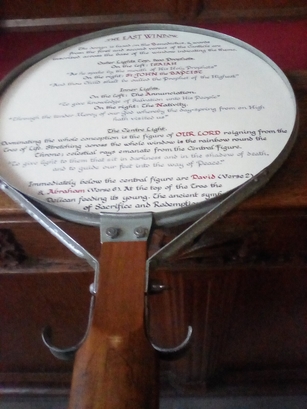 THE EAST WINDOW
The design is based on the Benedictus
Outer Lights Two Prophets
On the left: ISAIAH
"As he spake by the mouth of his Holy Prophets"
On the right: St JOHN the BAPTIST
"And thou Child shalt be called the Prophet of the Highest"
Inner Lights.
On the left: The Annunciation.
"To give Knowledge of Salvation unto His People"
On the right: The Nativity.
"Through the tender Mercy of our God whereby the Dayspring from on High
hath visited us"
The Central Light.
Dominating the whole conception is the figure of OUR LORD reigning from the
Tree of Life. Stretching across the whole window is the rainbow round the
Throne; celestial rays emanate from the Central figure.
"To give light to them that sit in darkness and in the shadow of death,
and to guide our feet into the way of Peace"
Immediately below the central figure are David (Verse 2)
& Abraham (Verse 6). At the top of the Tree the
Pelican feeding its young. The ancient symbol
of Sacrifice and Redemption